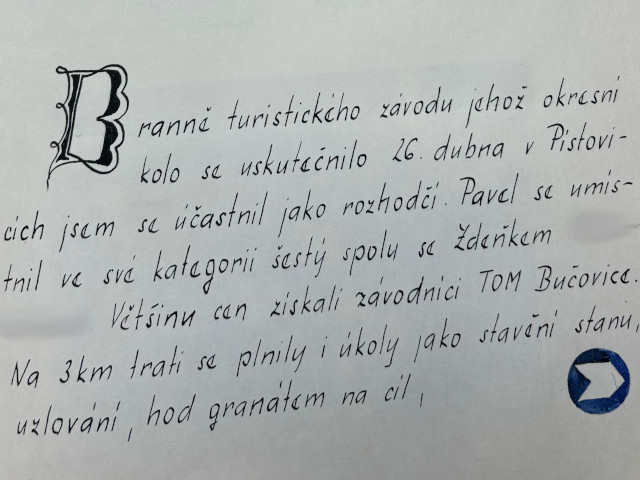 Branně turistického závodu jehož okresní
kolo se uskutečnilo 26. dubna v Pístovi-
cích jsem se účastnil jako rozhodčí. Pavel se umís-
tnil ve své kategorii šestý spolu se Zdeňkem
Většinu cen získali závodníci TOM Bučovice.
Na 3km trati se plnily i úkoly jako stavění stanu,
uzlování, hod granátem na cíl,